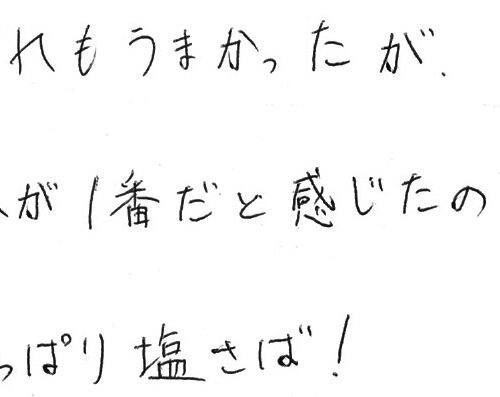 れもうまかったが、
が1番だと感じたの
っぱり塩さば!